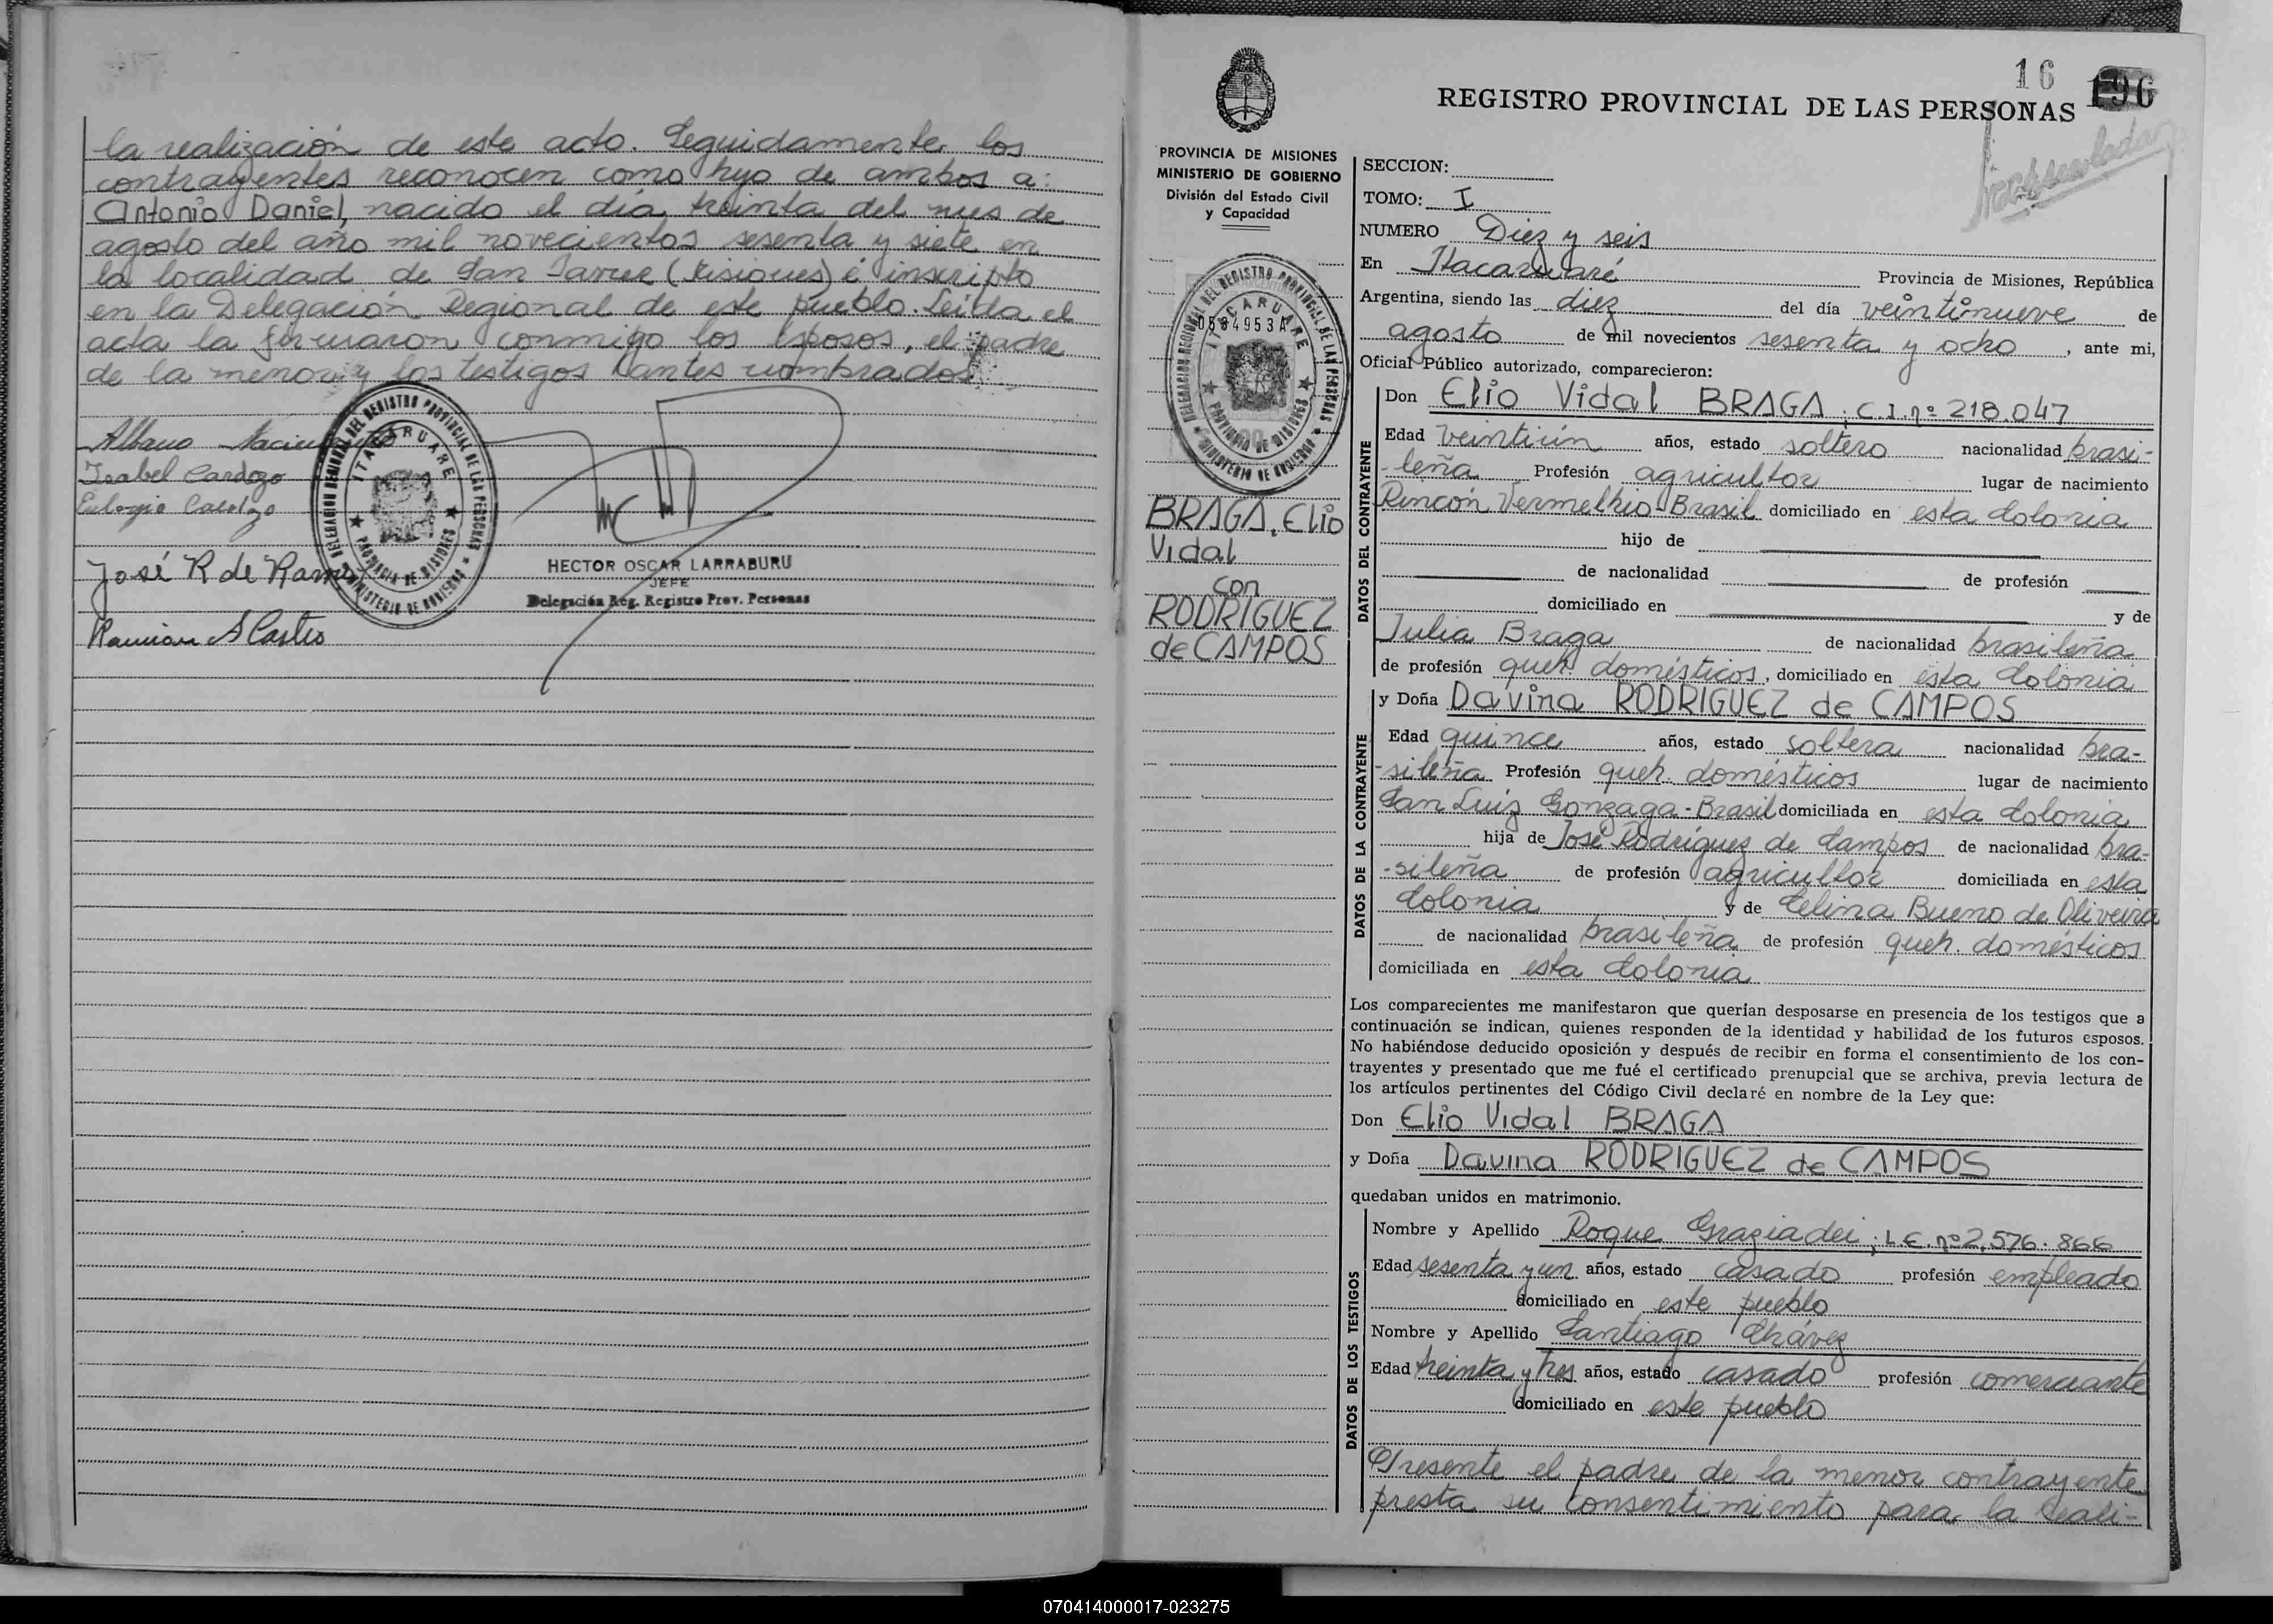 la realización de este acto. Seguidamente los
contrayentes reconocen como hijo de ambos a:
Antonio Daniel, nacido el día treinta del mes de
agosto del año mil novecientos sesenta y siete en
la localidad de San Javier (Misiones) é inscripto
en la Delegación Regional de este pueblo. Leída el
acta la firmaron conmigo los esposos, el padre
de la menor y los testigos antes nombrados.
Albano
Isabel Cardozo
Eulogio Cardozo
José R de Ramos
Ramón A Castro
DELEGACION REGIONAL DEL REGISTRO PROVINCIAL DE LAS PERSONAS
ITACARUARE
PROVINCIA DE MISIONES
MINISTERIO DE GOBIERNO
HECTOR OSCAR LARRABURU
JEFE
Delegación Reg. Registro Prov. Personas
16
196
REGISTRO PROVINCIAL DE LAS PERSONAS
PROVINCIA DE MISIONES
MINISTERIO DE GOBIERNO
División del Estado Civil
y Capacidad
DELEGACION REGIONAL DEL REGISTRO PROVINCIAL DE LAS PERSONAS
ITACARUARE
0584953A
PROVINCIA DE MISIONES
MINISTERIO DE GOBIERNO
BRAGA, Elio
Vidal
con
RODRIGUEZ
de CAMPOS
SECCION:
TOMO: I
NUMERO Diez y seis
En Itacaruaré Provincia de Misiones, República
Argentina, siendo las diez del día veintinueve de
agosto de mil novecientos sesenta y ocho, ante mi,
Oficial Público autorizado, comparecieron:
DATOS DEL CONTRAYENTE
Don Elio Vidal BRAGA; C.I. nº 218.047
Edad veintiún años, estado soltero nacionalidad brasi-
-leña Profesión agricultor lugar de nacimiento
Rincón Vermelhio-Brasil domiciliado en esta Colonia
hijo de
de nacionalidad de profesión
domiciliado en y de
Julia Braga de nacionalidad brasileña
de profesión queh. domésticos, domiciliado en esta Colonia
DATOS DE LA CONTRAYENTE
y Doña Davina RODRIGUEZ de CAMPOS
Edad quince años, estado soltera nacionalidad bra-
-sileña Profesión queh. domésticos lugar de nacimiento
San Luiz Gonzaga-Brasil domiciliada en esta Colonia
hija de José Rodriguez de Campos de nacionalidad bra-
-sileña de profesión agricultor domiciliada en esta
Colonia y de Celina Bueno de Oliveira
de nacionalidad brasileña de profesión queh. domésticos
domiciliada en esta Colonia
Los comparecientes me manifestaron que querían desposarse en presencia de los testigos que a
continuación se indican, quienes responden de la identidad y habilidad de los futuros esposos.
No habiéndose deducido oposición y después de recibir en forma el consentimiento de los con-
trayentes y presentado que me fué el certificado prenupcial que se archiva, previa lectura de
los artículos pertinentes del Código Civil declaré en nombre de la Ley que:
Don Elio Vidal BRAGA
y Doña Davina RODRIGUEZ de CAMPOS
quedaban unidos en matrimonio.
DATOS DE LOS TESTIGOS
Nombre y Apellido Roque Graziadei; L.E. nº 2.576.866
Edad sesenta y un años, estado casado profesión empleado
domiciliado en este pueblo
Nombre y Apellido Santiago Chávez
Edad treinta y tres años, estado casado profesión comerciante
domiciliado en este pueblo
Presente el padre de la menor contrayente
presta su consentimiento para la reali-
070414000017-023275